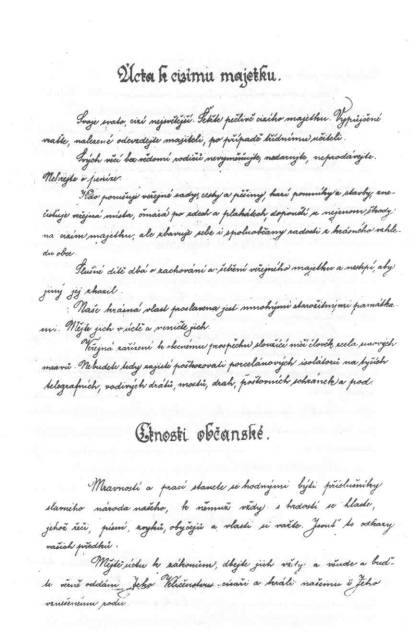 Úcta k cizímu majetku.
Svoje svato, cizí nejsvětější. Šetřte pečlivě cizího majetku. Vypůjčené
vraťte, nalezené odevzdejte majiteli, po případě třídnímu učiteli.
Svých věcí bez vědomí rodičů nevyměňujte, nedarujte, neprodávejte.
Nehrejte o peníze.
Kdo poškozuje veřejné sady, cesty a pěšiny, kazí pomníky a stavby, zne-
čisťuje veřejná místa, čmárá po zdech a plakátech, dopouští se nejenom škody
na cizím majetku, ale zbavuje sebe i spoluobčany radosti z krásného vzhle-
du obce
Slušné dítě dbá o zachování a šetření veřejného majetku a netrpí, aby
jiný jej zkazil.
Naše krásná vlast proslavena jest mnohými starožitnými památka-
mi. Mějte jich v úctě a neničte jich
Veřejná zařízení k obecnému prospěchu sloužící ničí člověk zcela surových
mravů. Nebudete tedy zajisté poškozovati porcelánových isolátorů na tyčích
telegrafních, vodivých drátů, mostů, drah, poštovních schránek a pod.
Ctnosti občanské.
Mravností a prací staňte se hodnými býti příslušníky
slavného národa našeho, k němuž vždy s hrdostí se hlaste,
jehož řeči, písní, zvyků, obyčejů a vlasti si važte. Jsouť to odkazy
vašich předků.
Mějte úctu k zákonům, dbejte jich vždy a všude a buď-
te věrně oddáni Jeho Veličenstvu císaři a králi našemu i Jeho
vznešenému rodu